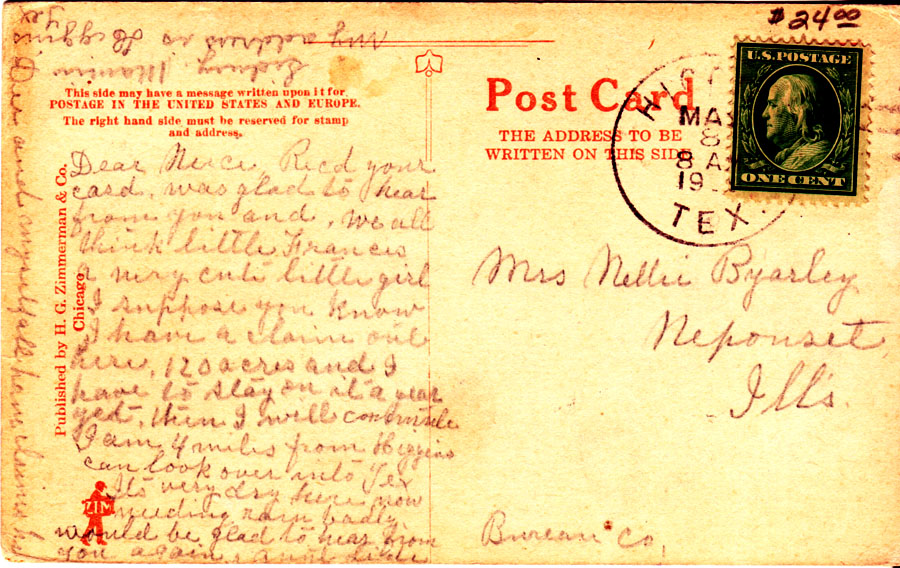 $24.00
U.S. POSTAGE
ONE CENT
MA
8
8 A
19
TEX.
Post Card
THE ADDRESS TO BE
WRITTEN ON THIS SIDE
This side may have a message written upon it for
POSTAGE IN THE UNITED STATES AND EUROPE.
The right hand side must be reserved for stamp
and address.
Published by H. G. Zimmerman & Co.
Chicago
ZIM
Dear Neice Recd your
card, was glad to hear
from you and, we all
think little Frances
a very cute little girl
I suppose you know
I have a claim out
here, 120 acres and I
have to stay on it a year
yet, then I will
I am 4 miles from Higgins
can look over into Tex
Its very dry here now
needing rain badly
would be glad to hear from
you again,
and myself all have claims
My address is Higgins
Tex
Mrs Nellie Byarley
Neponset,
Ills.
Bureau Co,